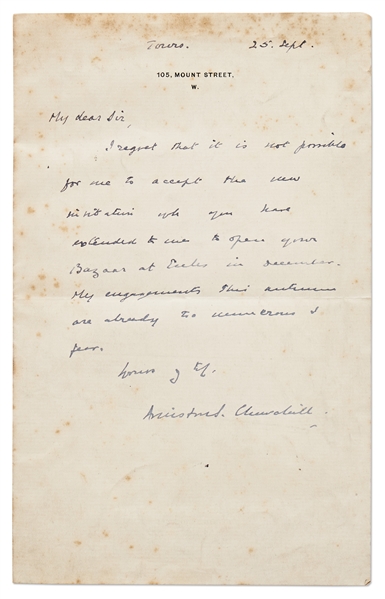 Tours. 25. Sept.
105, MOUNT STREET,
W.
My dear Sir,
I regret that it is not possible
for me to accept the new
invitation wh you have
extended to me to open your
Bazaar at Eccles in December.
My engagements this autumn
are already too numerous I
fear.
Yours
Winston S. Churchill.